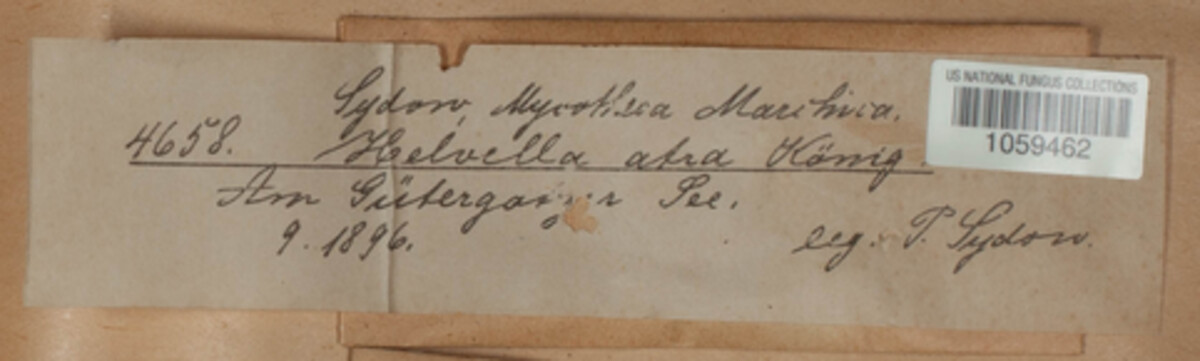 Sydow, Mycotheca Marchica.
4658. Helvella atra König.
Am Gütergotzer See.
9. 1896.
leg. P. Sydow.
US NATIONAL FUNGUS COLLECTIONS
1059462